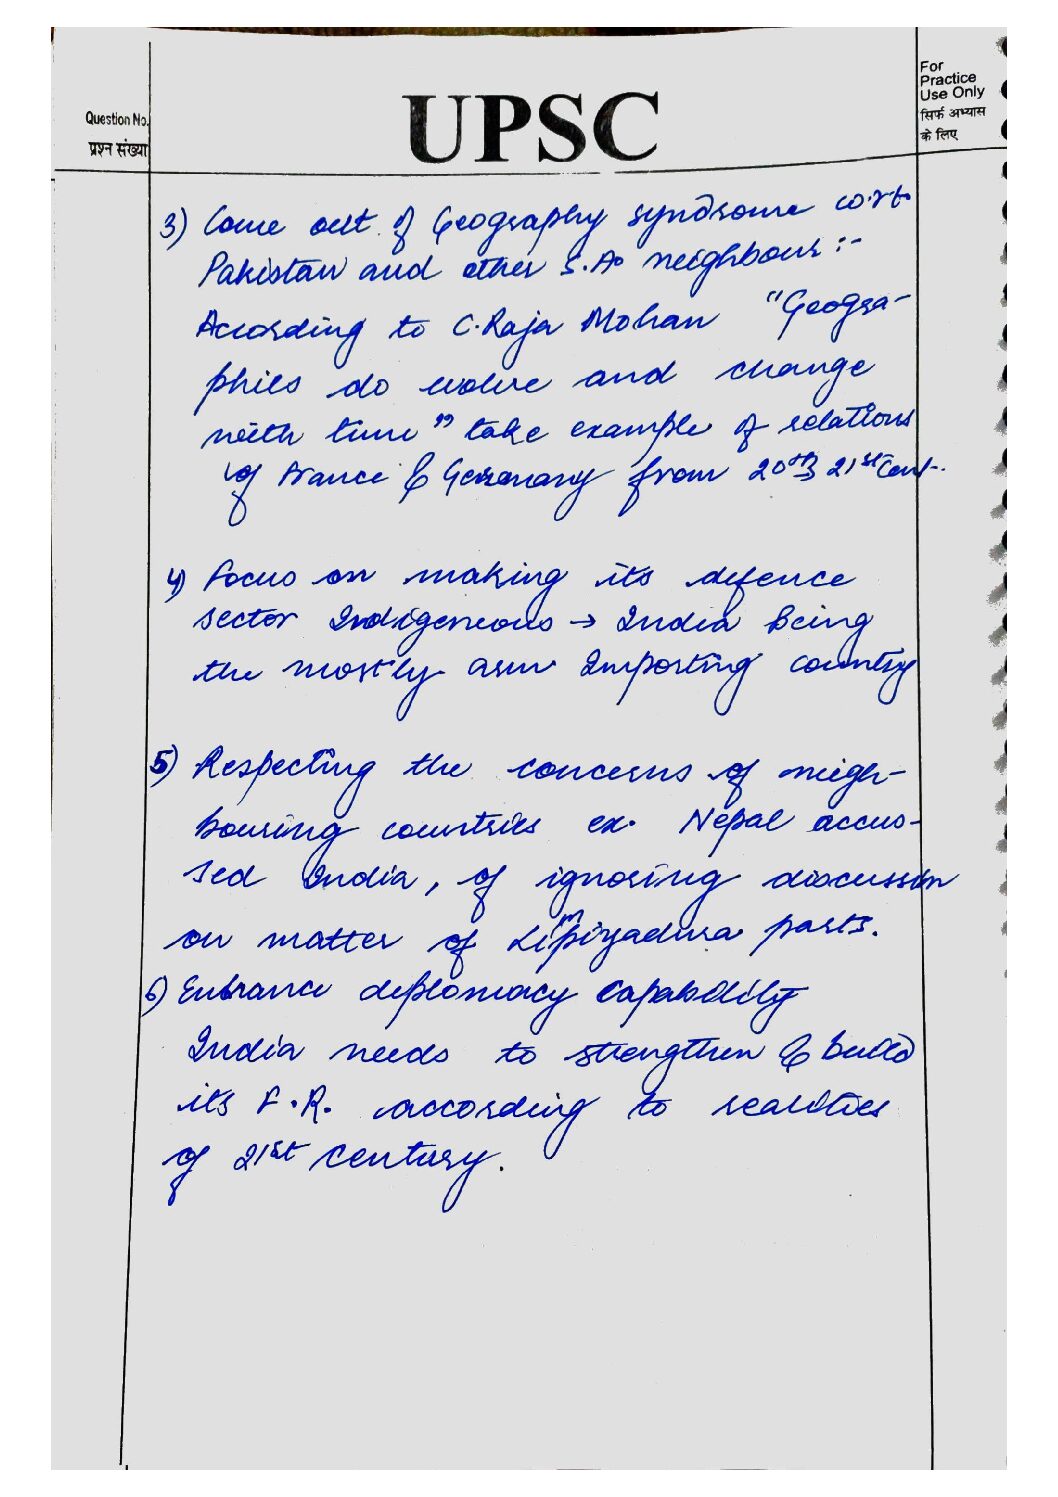 Question No.
प्रश्न संख्या
UPSC
For
Practice
Use Only
सिर्फ अभ्यास
के लिए
3) Come out of Geography syndrome w.r.t
Pakistan and other S.A. neighbours :-
According to C. Raja Mohan "Geogra-
phies do evolve and change
with time" take example of relations
of France & Germany from 20th 21st Cent.
4) Focus on making its defence
sector Indigeneous → India Being
the mostly arm Importing country
5) Respecting the concerns of neigh-
bouring countries ex. Nepal accus-
sed India, of ignoring discussion
on matter of Limpiyadura parts.
6) Enhance diplomacy Capability
India needs to strengthen & build
its F.R. according to realities
of 21st century.